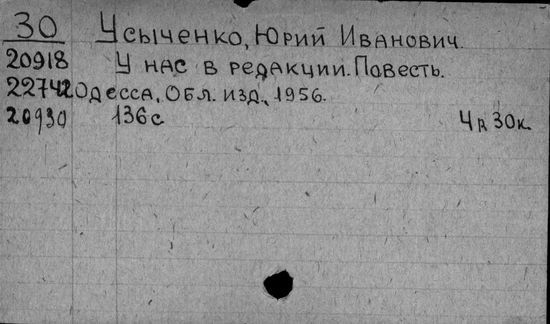 30 Усыченко, Юрий Иванович.
20918 У нас в редакции. Повесть.
22742 Одесса, Обл. изд., 1956.
20930 136 с 4 р 30 к.